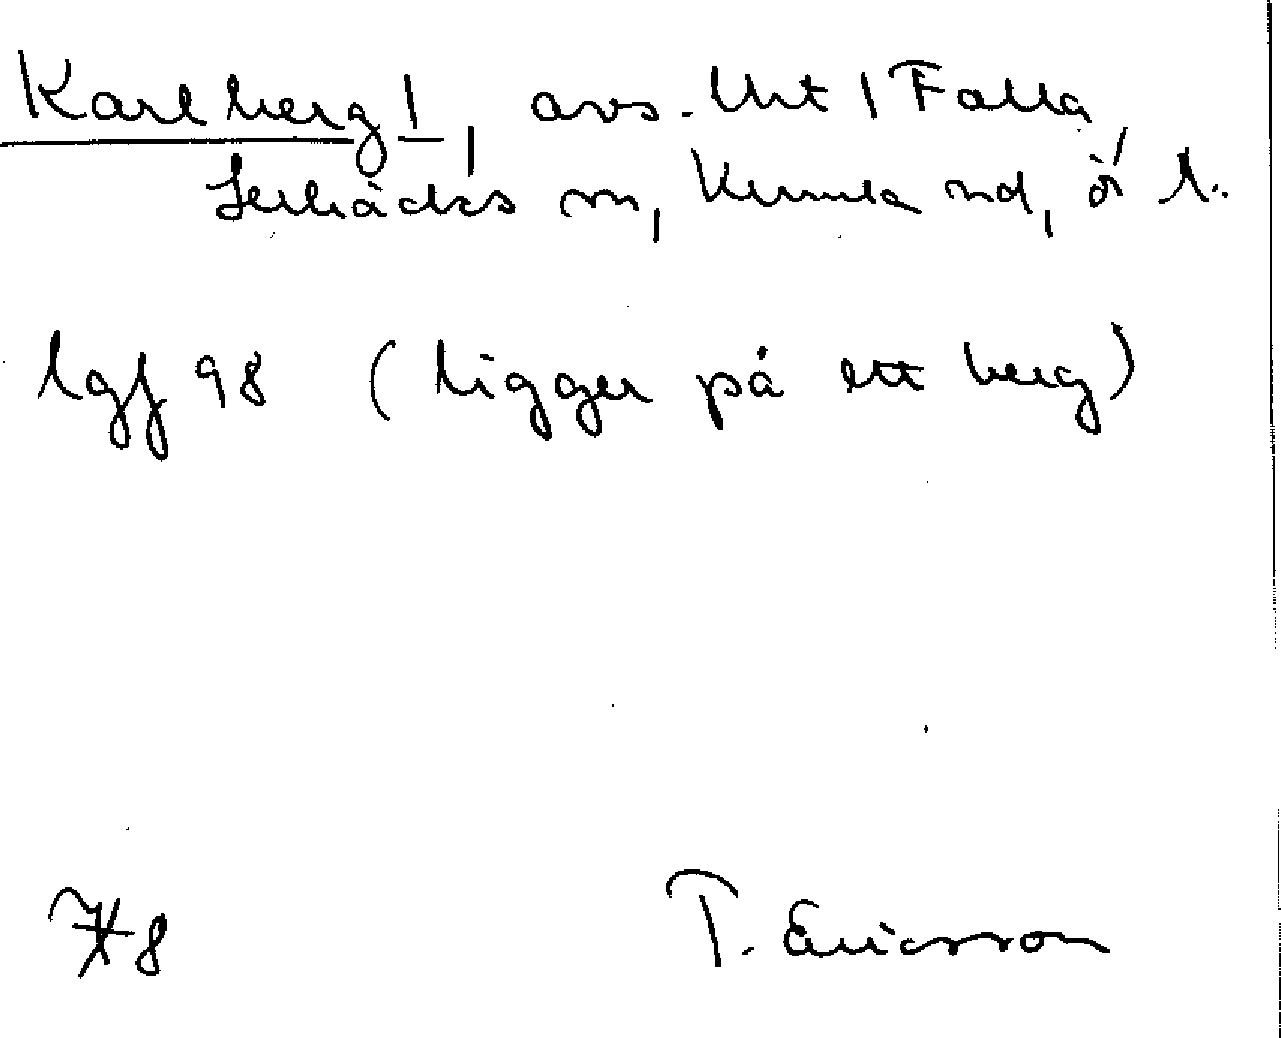 Karlberg 1, avs. Utt 1 Falla,
Lerbäcks sn, Kumla hd, Ör l.
lgf 98 (ligger på ett berg)
7/8 T. Ericsson